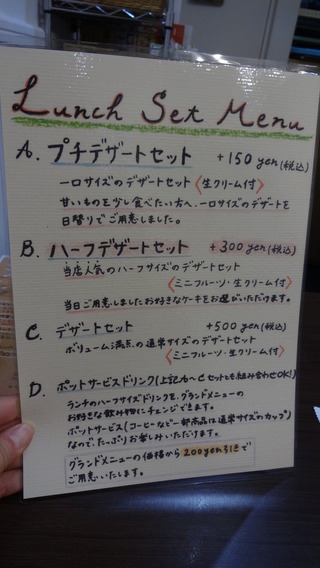 Lunch Set Menu
A. プチデザートセット +150yen(税込)
一口サイズのデザートセット〈生クリーム付〉
甘いものを少し食べたい方へ、一口サイズのデザートを
日替りでご用意しました。
B. ハーフデザートセット +300yen(税込)
当店人気のハーフサイズのデザートセット
〈ミニフルーツ・生クリーム付〉
当日ご用意しましたお好きなケーキをお選びいただけます。
C. デザートセット +500yen(税込)
ボリューム満点の通常サイズのデザートセット
〈ミニフルーツ・生クリーム付〉
D. ポットサービスドリンク(上記A〜Cセットとも組み合わせOK!)
ランチのハーフサイズドリンクを、グランドメニューの
お好きな飲み物にチェンジできます。
ポットサービス(コーヒーなど一部商品は通常サイズのカップ)
なので、たっぷりお楽しみいただけます。
グランドメニューの価格から200yen引きで
ご用意いたします。